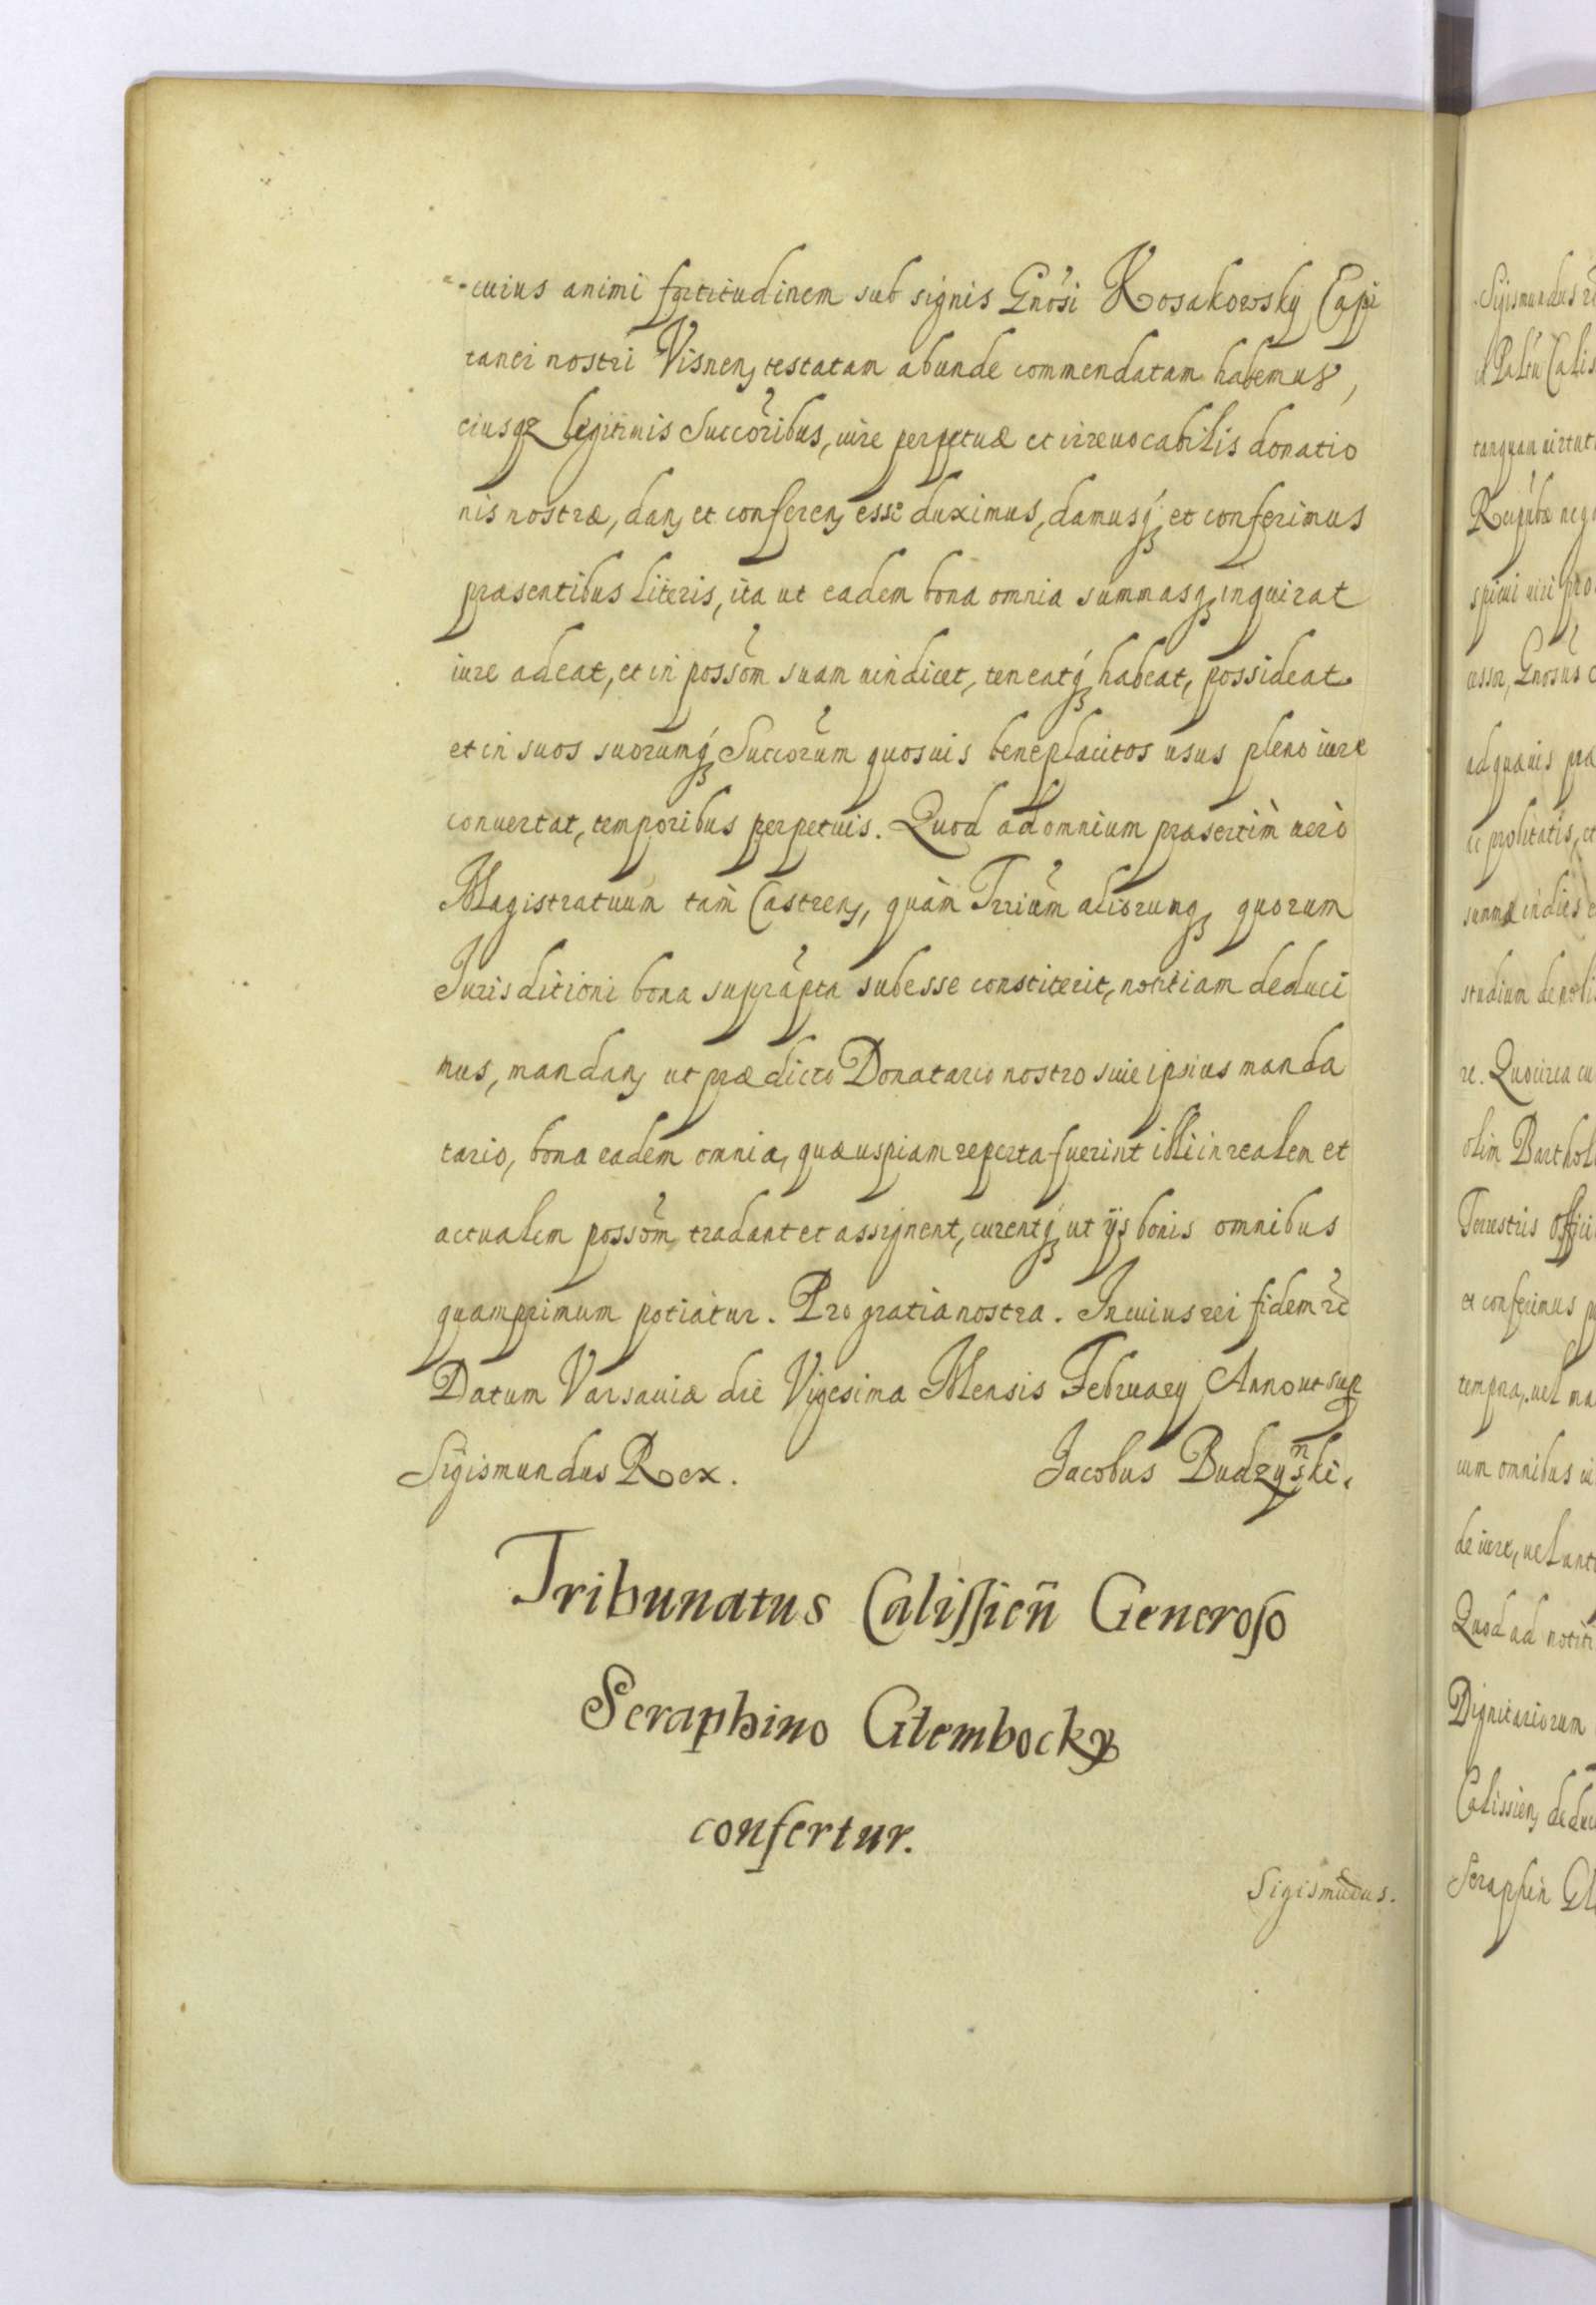 cuius animi fortitudinem sub signis Gnosi Kosakowsky Capi
tanei nostri Visnen, testatam abunde commendatam habemus,
eiusq3 legitimis Succoribus, iure perpetuæ et irreuocabilis donatio
nis nostræ, dan, et conferen, esse duximus, damusq3 et conferimus
præsentibus literis, ita ut eadem bona omnia summasq3 inquirat
iure adeat, et in possom suam uindicet, teneatq3 habeat, possideat
et in suos suorumq3 Succorum quosuis beneplacitos usus pleno iure
conuertat, temporibus perpetuis. Quod ad omnium præsertim uerò
Magistratuum tam Castren, quàm Trrium aliorumq3 quorum
Jurisditioni bona suprapta subesse constiterit, notitiam deduci
mus, mandan, ut prædicto Donatario nostro siue ipsius manda
tario, bona eadem omnia, quæuspiam reperta fuerint illi in realem et
actualem possom tradant et assignent, curentq3 ut ijs bonis omnibus
quamprimum potiatur. Pro gratia nostra. In cuius rei fidem rc
Datum Varsauiæ die Vigesima Mensis February Anno ut sup
Sigismundus Rex. Jacobus Budzyński.
Tribunatus Calissień Generoso
Seraphino Glembocky
confertur.
Sigismūdus.
Sigismundus
Calis
tanquam uirtut
Reipubæ neg
spicui uiri pro
Gnosus
ad quæuis præ
probitatis, et
summæ indies
studium de nobis
re. Quocirca cu
olim Barthol
Terrestris Offici
et conferimus
uel ma
cum omnibus
de iure, uel ant
Quod ad notiti
Dignitariorum
Calissien, dedu
Seraphin Gl